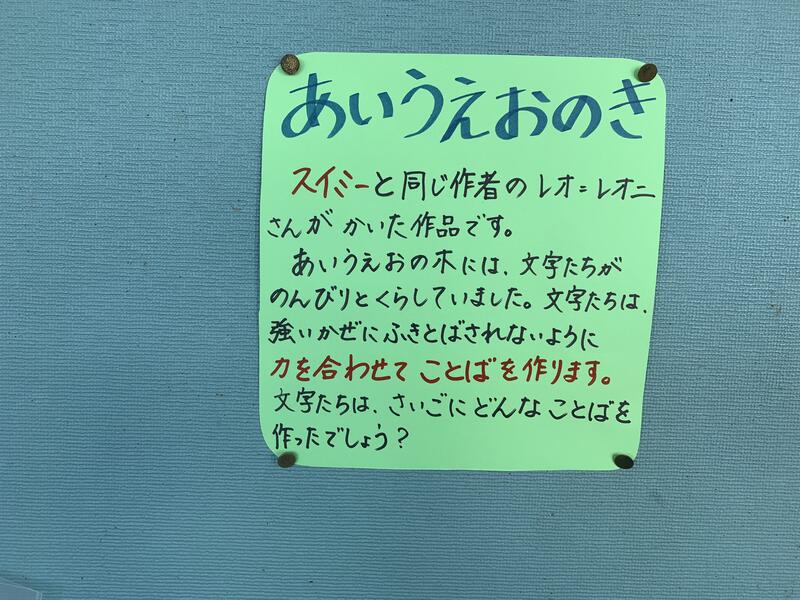 あいうえおのき
スイミーと同じ作者のレオ=レオニ
さんがかいた作品です。
あいうえおの木には、文字たちが
のんびりとくらしていました。文字たちは、
強いかぜにふきとばされないように
力を合わせてことばを作ります。
文字たちは、さいごにどんなことばを
作ったでしょう？